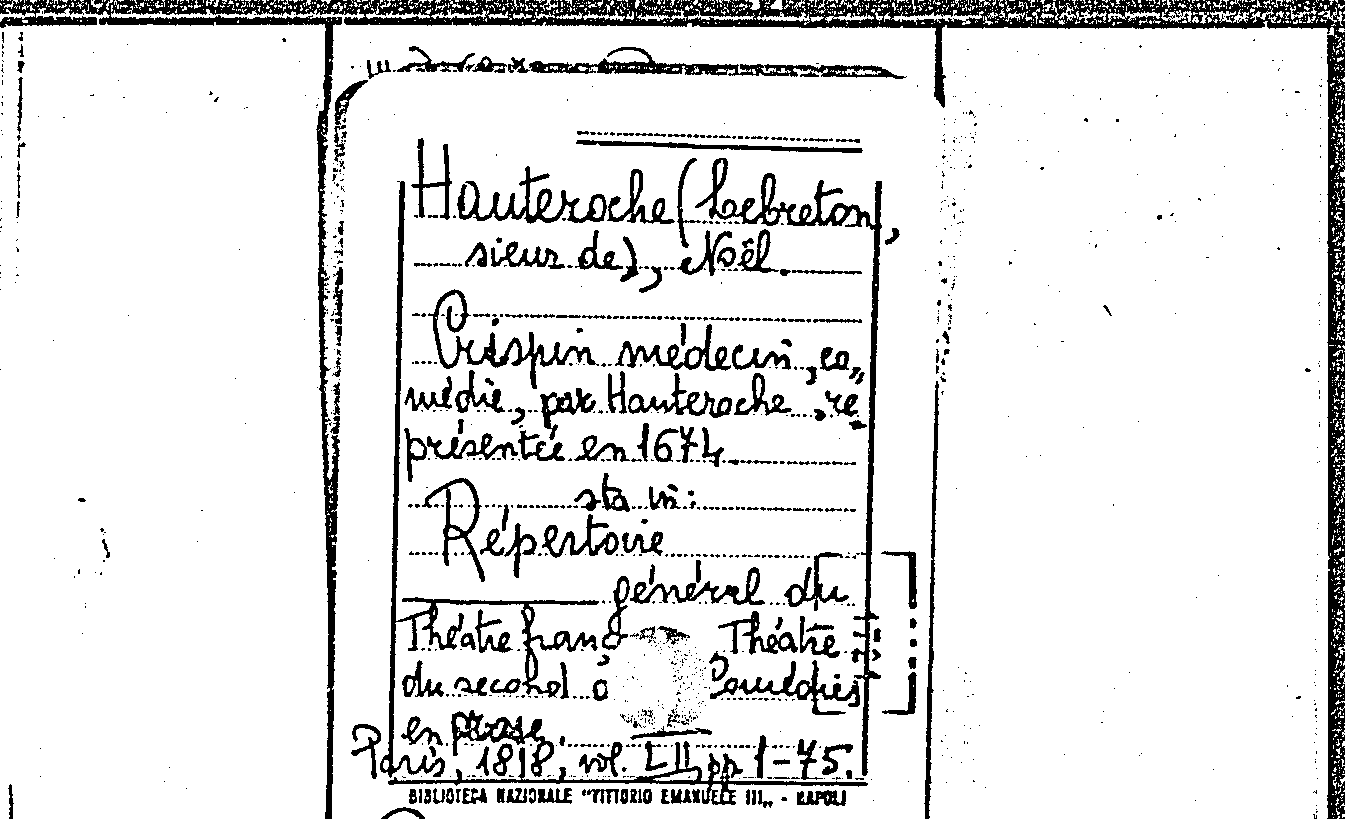 Hauteroche (Lebreton,
sieur de), Noël.
Crispin médecin, co„
médie, par Hauteroche, re
présentée en 1674.
sta in:
Répertoire
général du
Théâtre franç Théâtre
du second o Comédies
en prose.
Paris, 1818, vol. LII, pp 1-75.
BIBLIOTECA NAZIONALE "VITTORIO EMANUELE III„ - NAPOLI